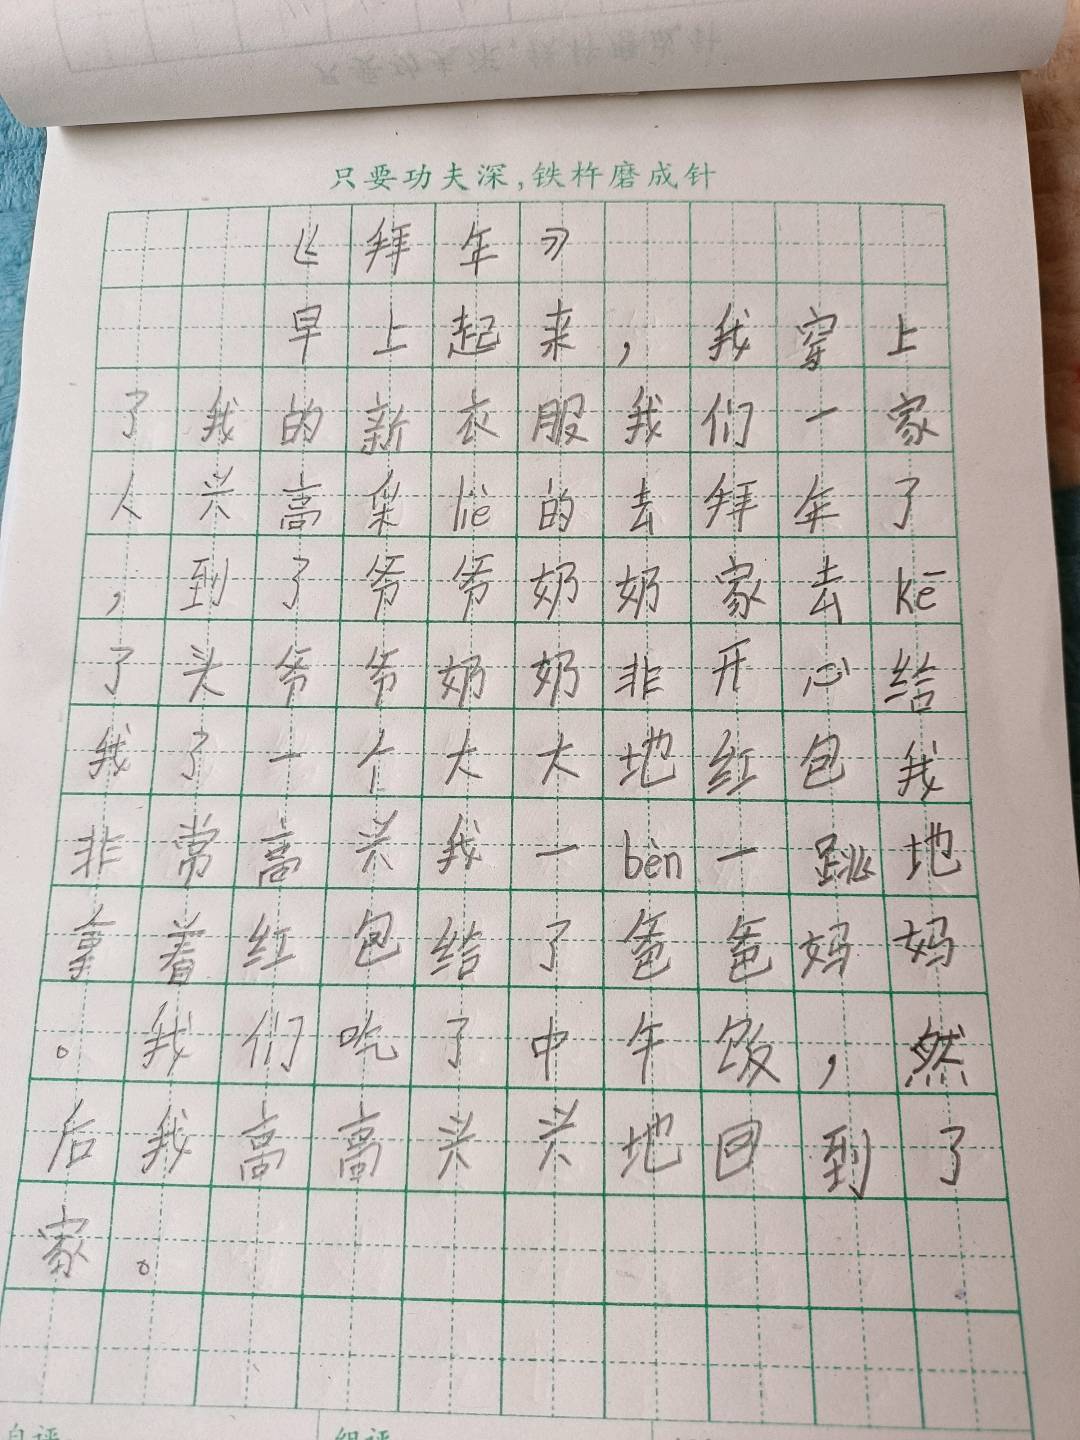 只要功夫深,铁杵磨成针
《拜年》
早上起来，我穿上
了我的新衣服我们一家
人兴高采liè的去拜年了
，到了爷爷奶奶家去kē
了头爷爷奶奶非开心给
我了一个大大地红包我
非常高兴我一bèn一跳地
拿着红包给了爸爸妈妈
。我们吃了中午饭，然
后我高高兴兴地回到了
家。
自评
组评